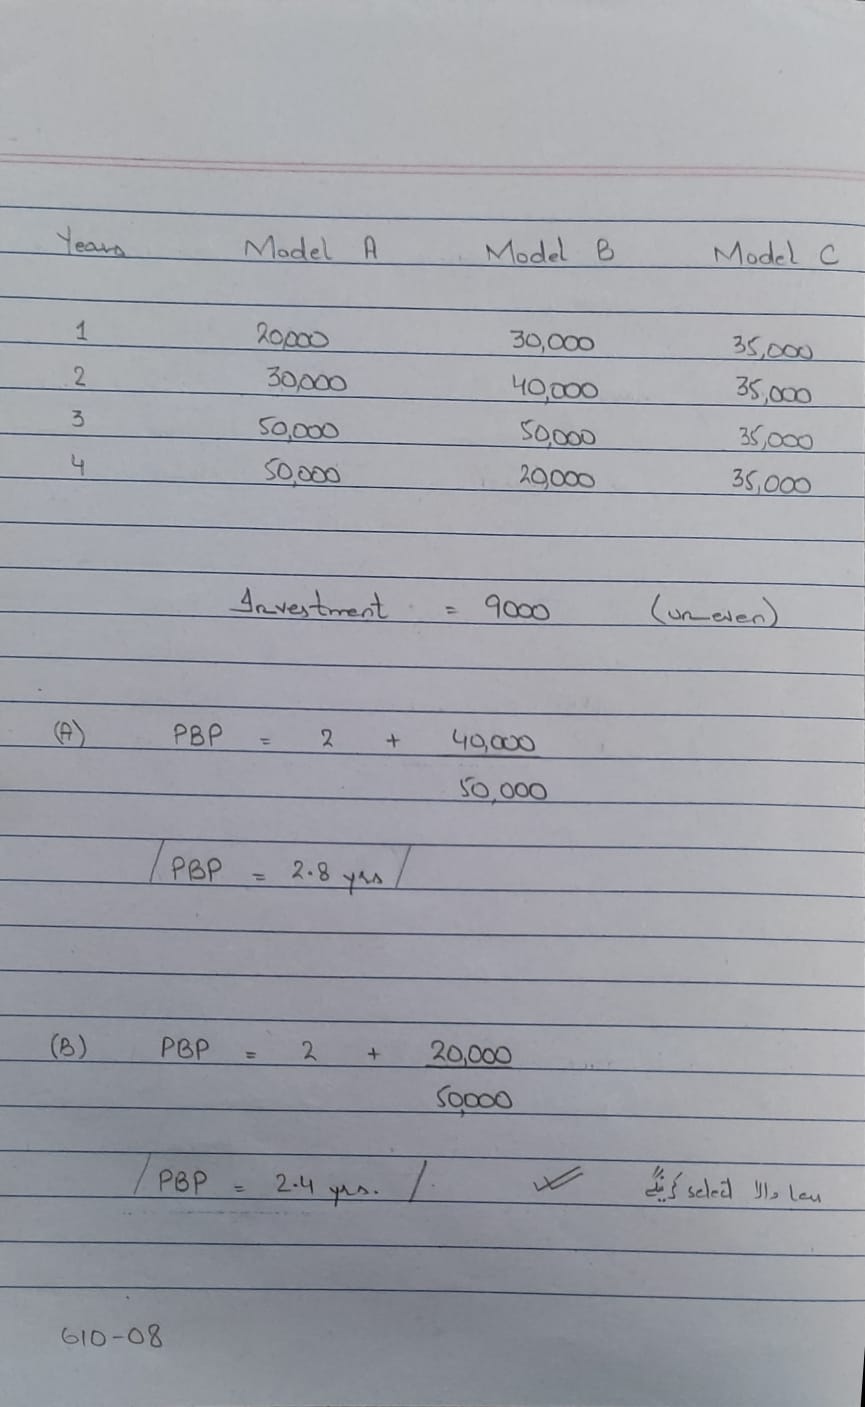 Years Model A Model B Model C
1 20,000 30,000 35,000
2 30,000 40,000 35,000
3 50,000 50,000 35,000
4 50,000 20,000 35,000
Investment = 9000 (un-even)
(A) PBP = 2 + 40,000
50,000
PBP = 2.8 yrs
(B) PBP = 2 + 20,000
50,000
PBP = 2.4 yrs. ✓ والا select کرینگے
610-08